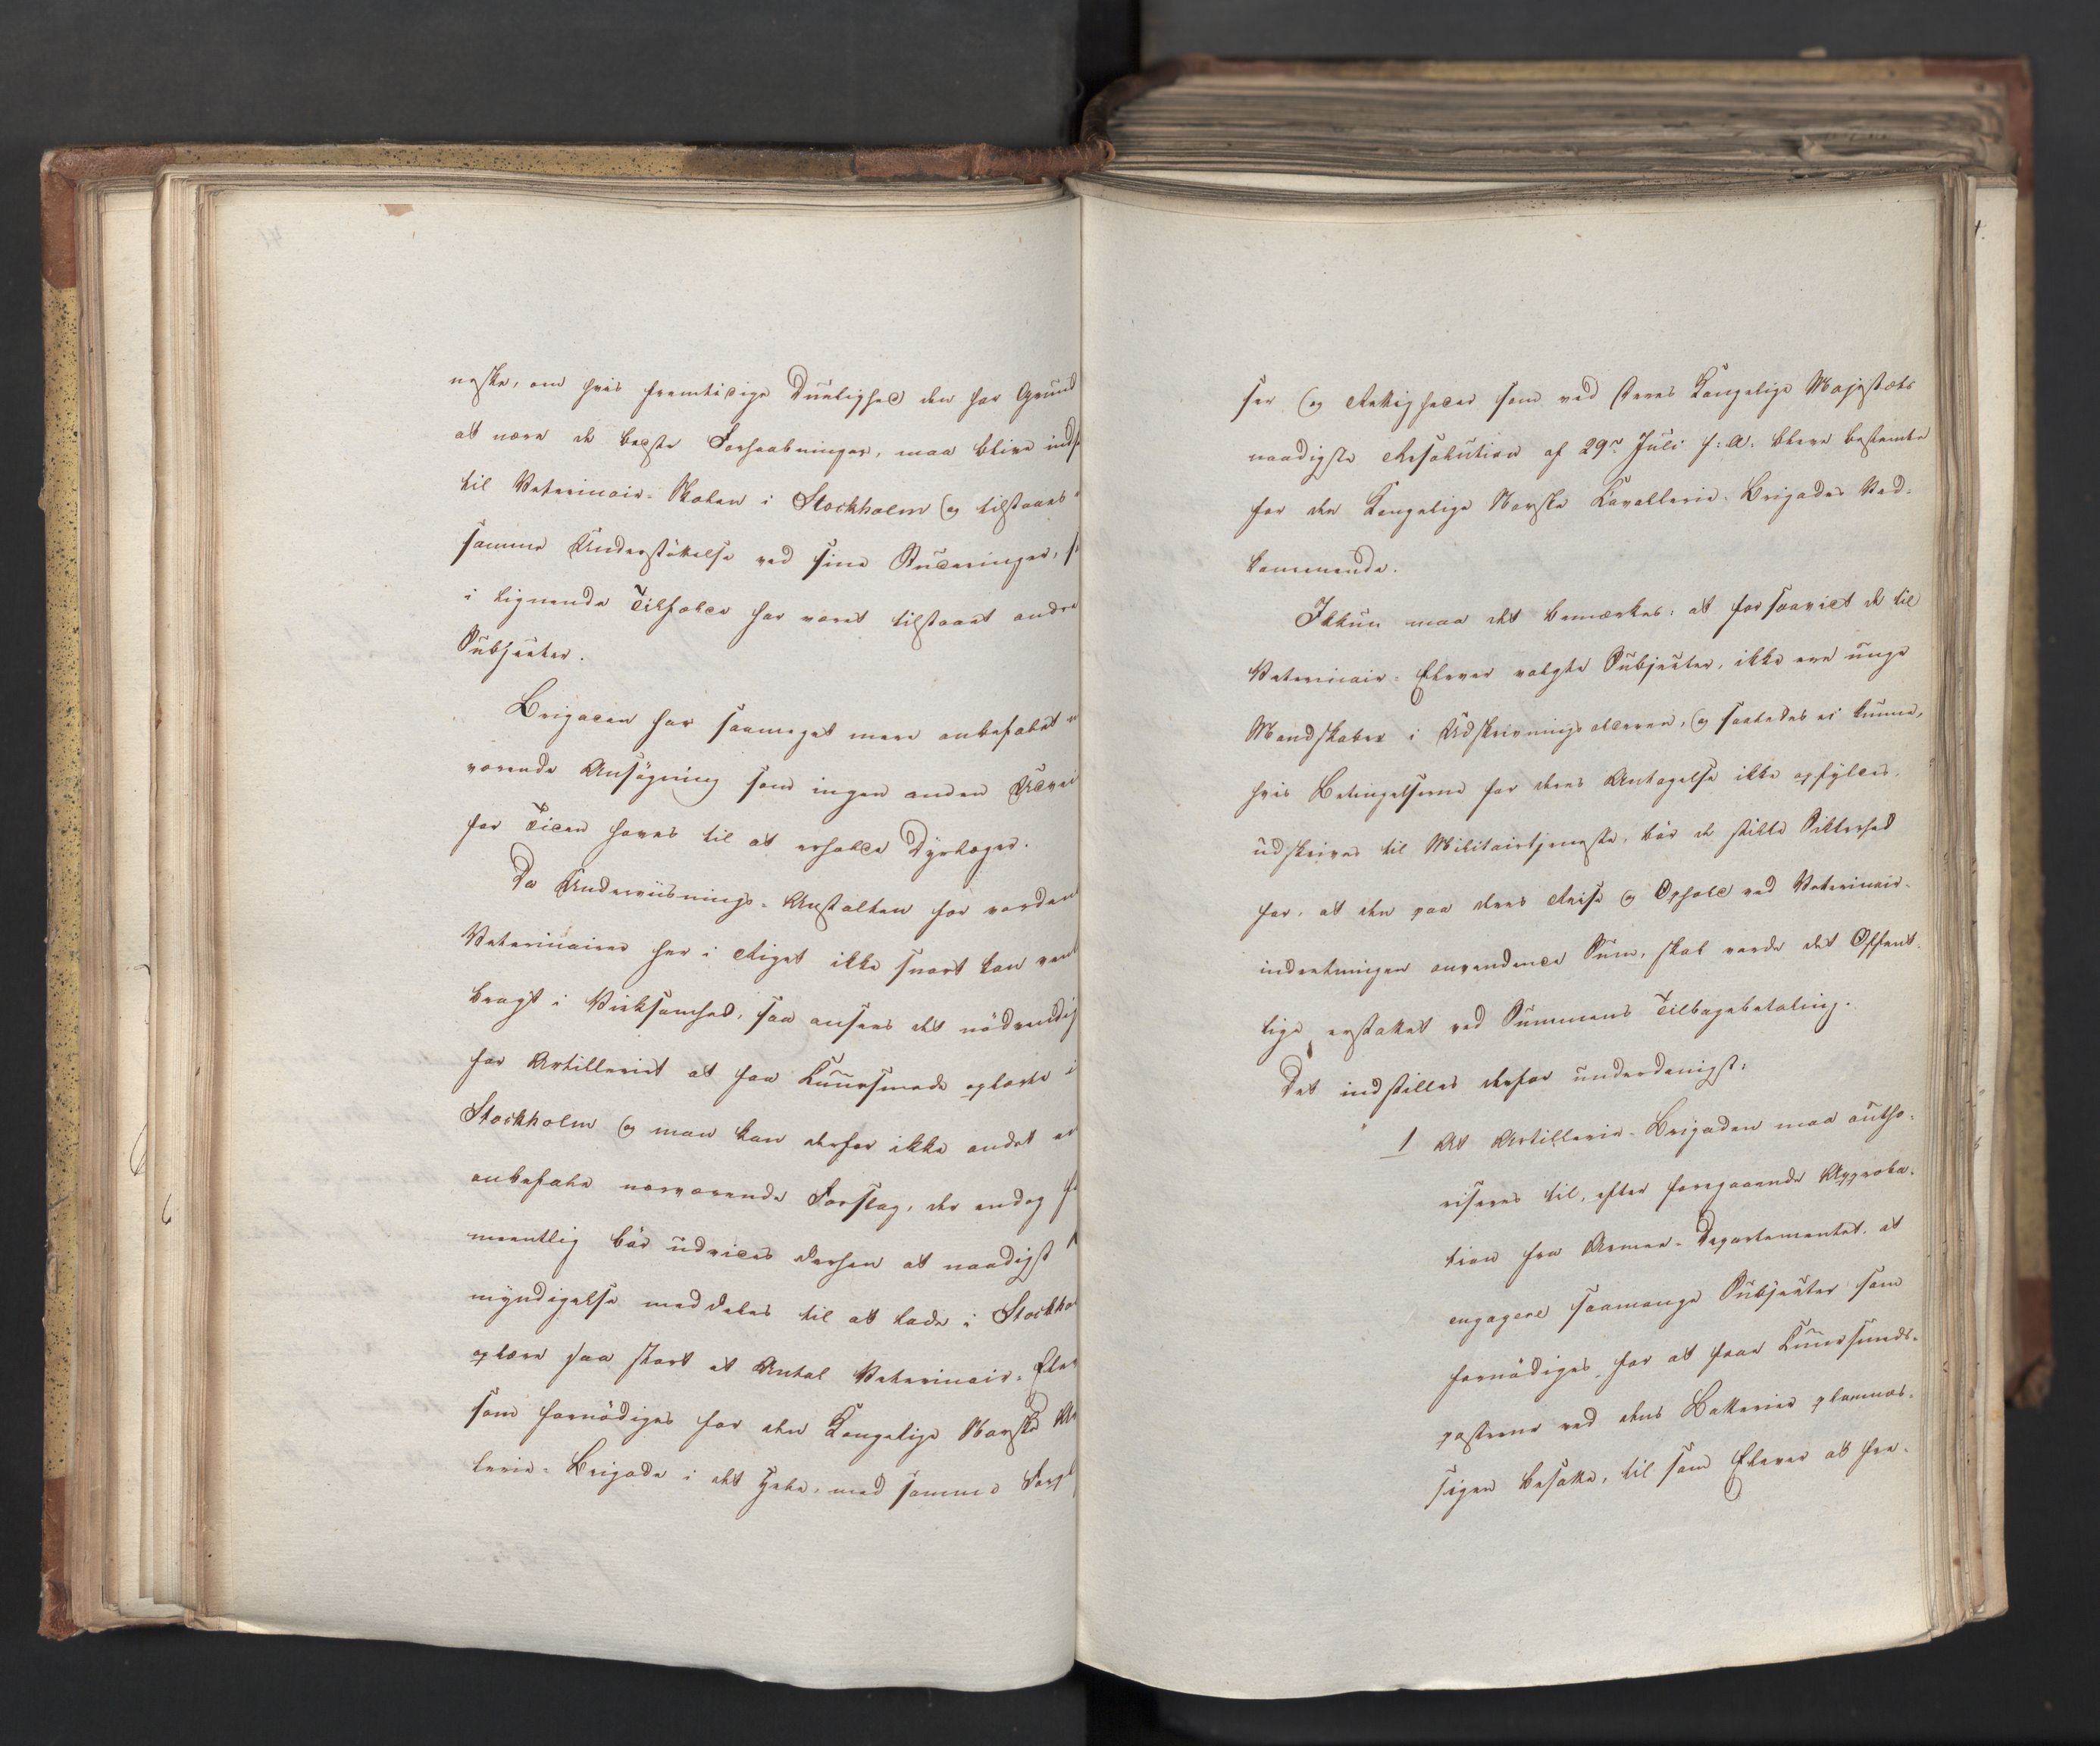 neske, om hvis fremtidige Duelighed den har Grund
at nære de beste Forhaabninger, maa blive inds
til Veterinair-Skolen i Stockholm og tilstaaes
samme Understøttelse ved sine Studeringer, s
i lignende Tilfælde har været tilstaaet andre
Subjecter.
Brigaden har saameget mere anbefalet n
værende Ansøgning som ingen anden Udvei
for Tiden haves til at erholde Dyrlæger.
Da Underviisnings-Anstalten for vorden
Veterinairer her i Riget ikke snart kan vent
bragt i Virksomhed, saa ansees det nødvendig
for Artilleriet at faa Kuursmede oplærte i
Stockholm og man kan derfor ikke andet en
anbefale nærværende Forslag, der endog f
meentlig bør udvides derhen at naadigst
myndigelse meddeles til at lade i Stockho
oplære saa stort et Antal Veterinair-Elev
som fornødiges for den Kongelige Norske Ar
lerie-Brigade i det Hele, med samme Forpl
ser og Rettigheder som ved Deres Kongelige Majestæts
naadigste Resolution af 29de Juli f: A: bleve bestemte
for den Kongelige Norske Cavallerie-Brigades Ved-
kommende.
Ikkun maa det bemærkes: at forsaavidt de til
Veterinair-Elever valgte Subjecter, ikke ere unge
Mandskaber i Udskrivningsalderen, og saaledes ei kunne,
hvis Betingelserne for deres Antagelse ikke opfyldes,
udskrives til Militairtjeneste, bør de stille Sikkerhed
for, at den paa deres Reise og Ophold ved Veterinair-
indretningen anvendende Sum, skal vorde det Offent-
lige erstattet ved Summens Tilbagebetaling.
Det indstilles derfor underdanigst:
1 At Artillerie-Brigaden maa autho-
riseres til, efter foregaaende Approba-
tion fra Armee-Departementet, at
engagere saamange Subjecter som
fornødiges for at faae Kuursmeds-
posterne ved dens Batterier planmæs-
sigen besatte, til som Elever at fre-